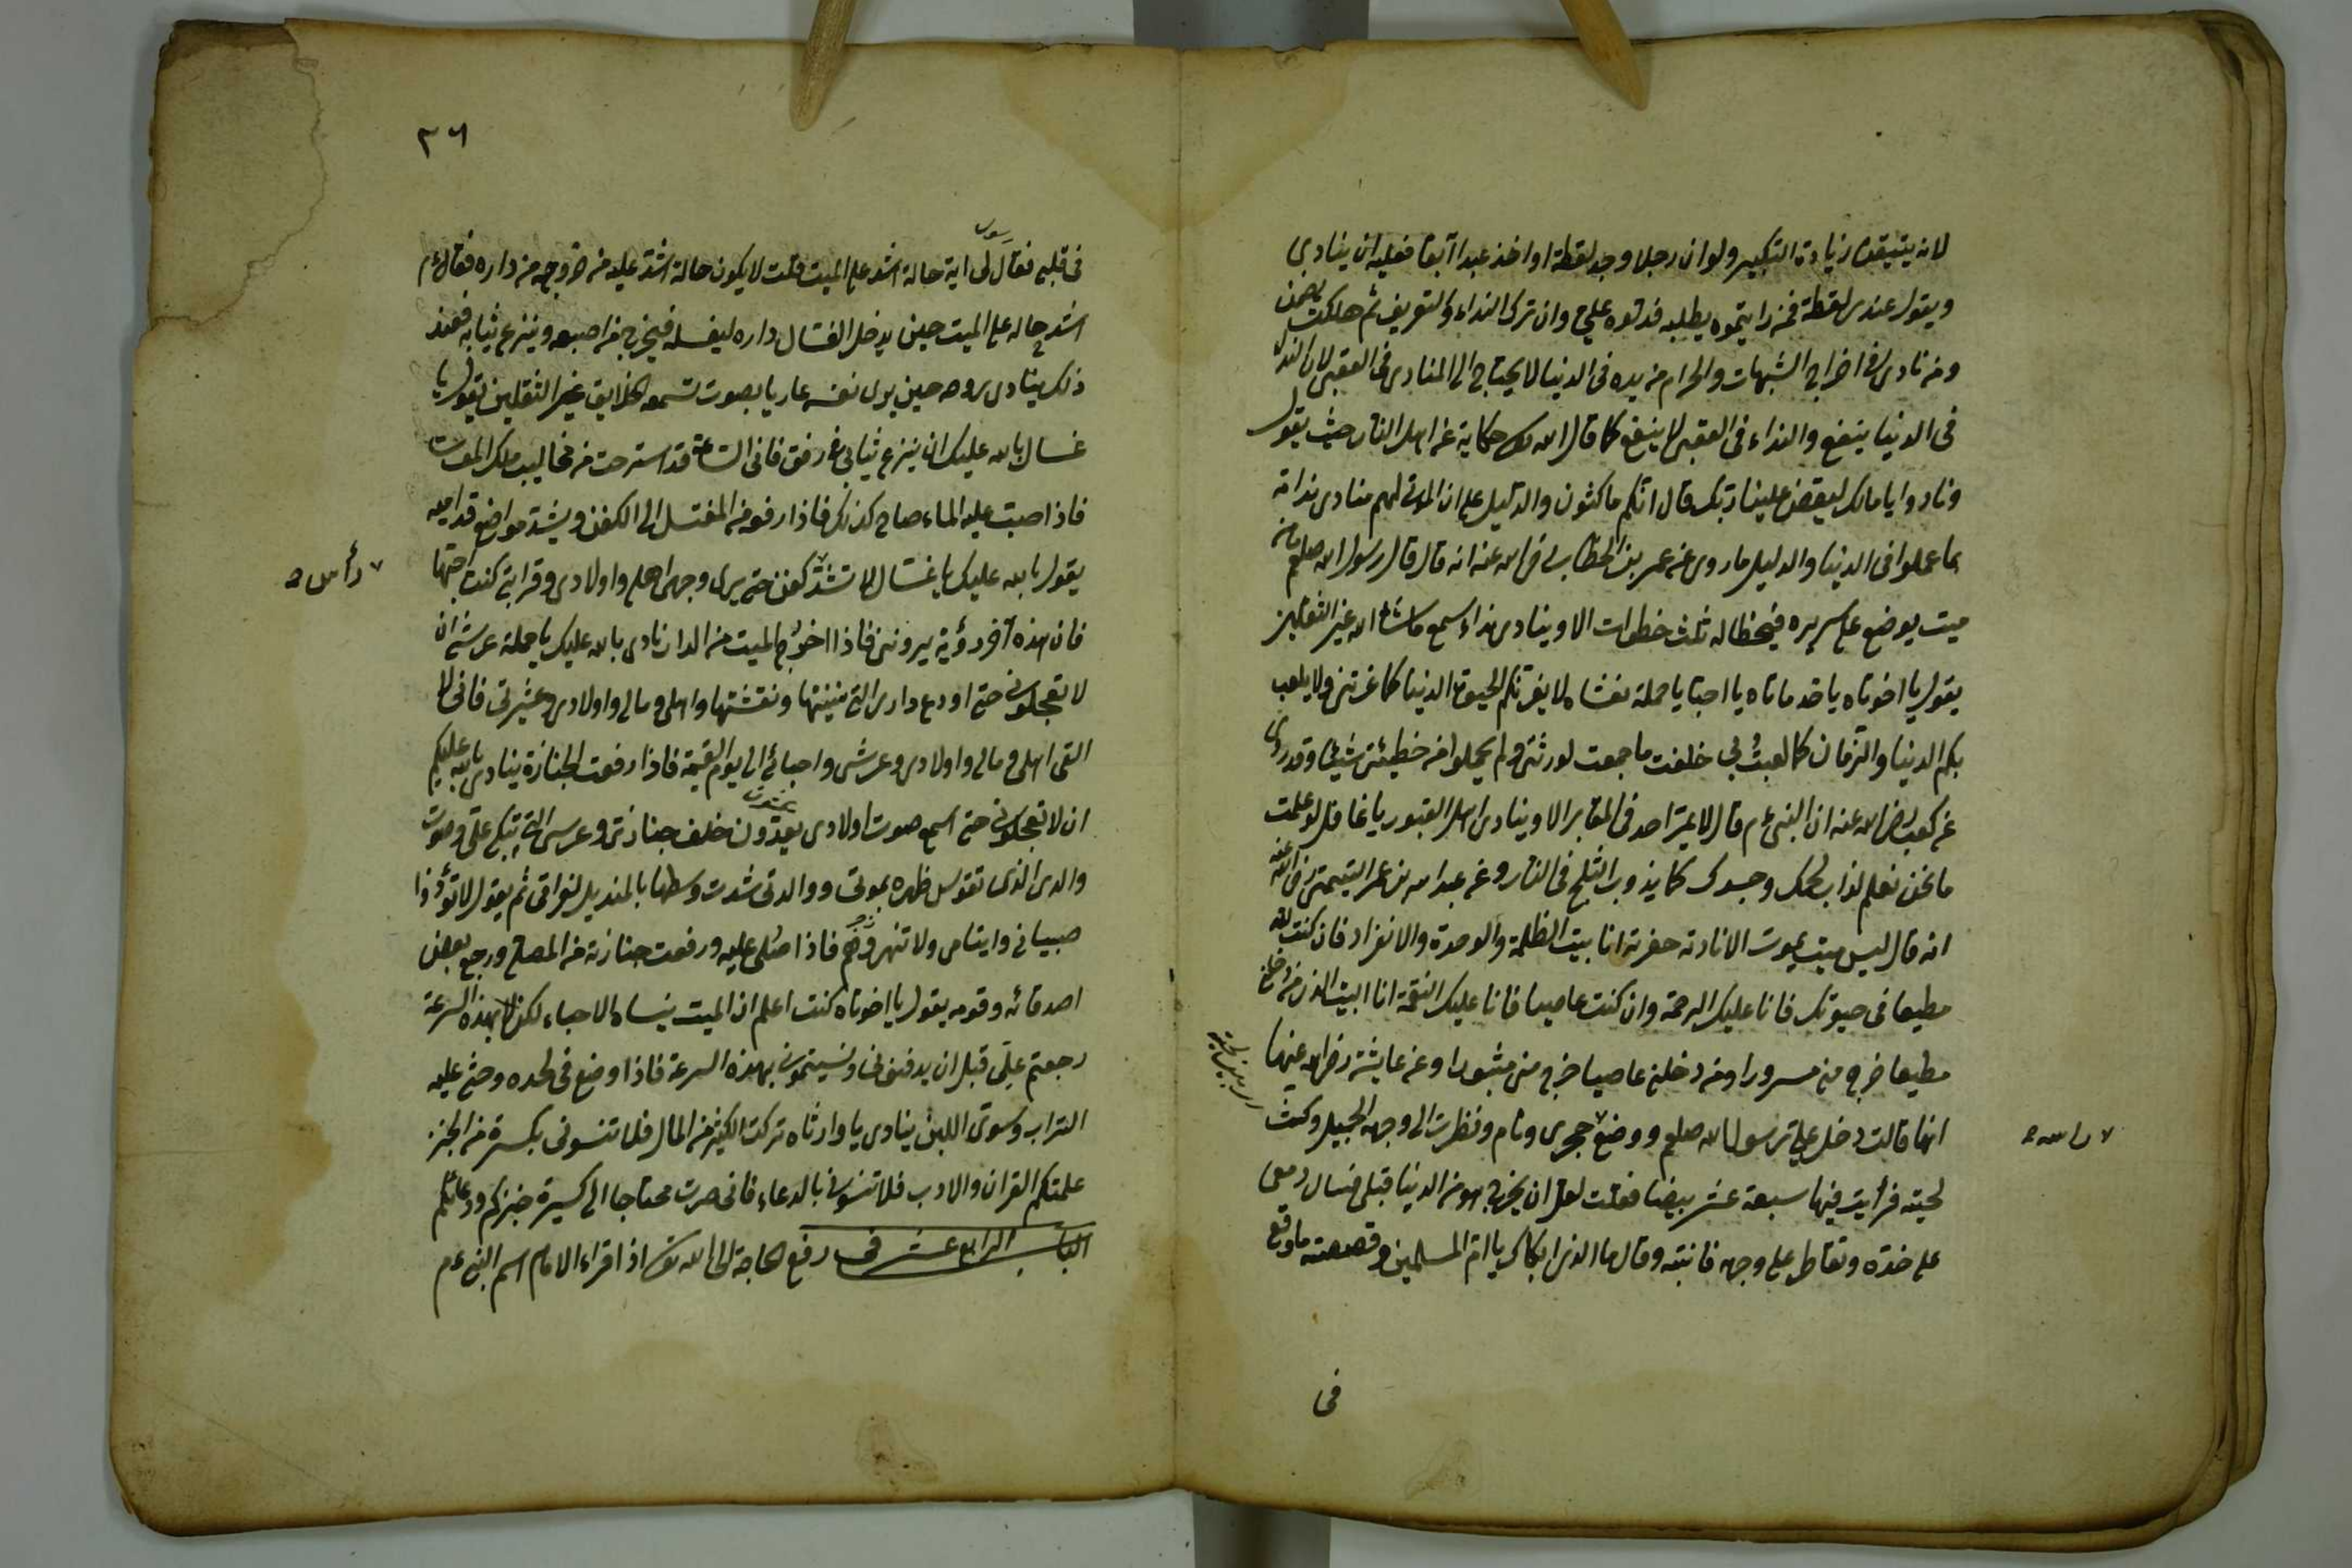 لانه يتيقن زيادة التكبير ولو ان رجلا وجد لقطة او اخذ عبدا آبقا فعليه ان ينادى
ويقول عندى لقطة فمن رايتموه يطلبه فدلوه علي وان ترك النداء والتعريف ثم هلكت يضمن
ومن نادى فى اخراج الشبهات والحرام من يده فى الدنيا لا يحتاج الى المنادى فى العقبى لان النداء
فى الدنيا ينفع والنداء فى العقبى لا ينفع كما قال الله تع حكاية عن اهل النار حيث يقول
ونادوا يا مالك ليقض علينا ربك قال انكم ماكثون والدليل على ان الموتى لهم منادى ندامة
بما عملوا فى الدنيا والدليل ما روى عن عمر بن الخطاب رضى الله عنه انه قال قال رسول الله صلعم ما من
ميت يوضع على سريره فيخطا له ثلث خطوات الا وينادى نداء يسمع ما شاء الله غير الثقلين
يقول يا اخوتاه يا خدماتاه يا احبا يا حملة نعشاه لا يغرنكم الحيوة الدنيا كما غرتنى ولا يلعب
بكم الدنيا والزمان كما لعبت بى خلفت ما جمعت لورثتى ولم يحملوا من خطيئتى شيئ وقد روى
عن كعب رضى الله عنه ان النبى ع م قال لا يمر احد فى المقابر الا وينادى اهل القبور يا غافل لو علمت
ما نحن نعلم لذاب لحمك وجسدك كما يذوب الثلج فى النار وعن عبد الله بن عمر التيمتى رضى الله عنه
انه قال ليس ميت يموت الا نادته حفرته انا بيت الظلمة والوحدة والانفراد فان كنت لله
مطيعا فى حيوتك فانا عليك الرحمة وان كنت عاصيا فانا عليك النقمة انا البيت الذى من دخلنى
مطيعا خرج منى مسرورا ومن دخلنى عاصيا خرج منى مثبورا وعن عايشة رضى الله عنها
انها قالت دخل علي رسول الله صلعم ووضع حجرى ونام ونظرت الى وجهه الجميل وكث
٧ راسه ٥
لحيته فرأيت فيها سبعة عشر بيضا فقلت لعل ان يخرج هو من الدنيا قبلى فسال دمعى
على خده وتقاطر على وجهه فانتبه وقال ما الذى ابكاك يا ام المسلمين وقصصته ما وقع
فى
٣٦
رسول
فى قلبى فقال لى اية حالة اشد على الميت قلت لا يكون حالة اشد عليه من خروجه من داره فقال ع م
اشد حاله على الميت حين يدخل الغسال داره ليغسله فيخرج من اصبعه وينزع ثيابه فعند
ذلك ينادى روحه حين يرى نفسه عاريا بصوت تسمعه الخلايق غير الثقلين يقول يا
غسال بالله عليك ان ينزع ثيابى رفق فانى الساعة قد استرحت من مخاليب ملك الموت
فاذا صبت عليه الماء صاح كذلك فاذا رفعو من المغتسل الى الكفن ويشد مواضع قداميه
يقول بالله عليك يا غسال لا تشد كفنى حتى يرى وجهى اهلى واولادى وقرابتى كنت احبها
٧ رأس ٥
فان هذه آخر رؤية يروننى فاذا اخرج الميت من الدار نادى بالله عليك يا حملة عرشى ان
لا تعجلونى حتى اودع دارى التى بنيتها ونقشتها واهلى ومالى واولادى وعشيرتى فانى لا
القى اهلى ومالى واولادى وعرشى واحبائى الى يوم القيمة فاذا رفعت الجنازة ينادى بالله عليكم
ان لا تعجلونى حتى اسمع صوت اولادى يعدون خلف جنازتى وعرسى التى تبكى علي وصوت
والدى الذى تقوس ظهره بموتى ووالدتى شدت وسطها بالمنديل لفراقى ثم يقول لا تؤذوا
صبيانى وايتامى ولا تنهروهم فاذا صلى عليه ورفعت جنازته من المصلى ورجع بعض
اصدقائه وقومه يقول يا اخوتاه كنت اعلم ان الميت ينساه الاحباء لكن لا بهذه السرعة
رجعتم علي قبل ان يدفنونى ونسيتمونى بهذه السرعة فاذا وضع فى لحده وحثى عليه
التراب وسوى اللبن ينادى يا وارثاه تركت الكثير من المال فلا تنسونى بكسرة من الخبز
علمتكم القران والادب فلا تنسونى بالدعاء فانى صرت محتاجا الى كسيرة خبزكم ودعائكم
الباب الرابع عشر فى رفع الحاجة الى الله تع اذا قراء الامام اسم النبى ع م